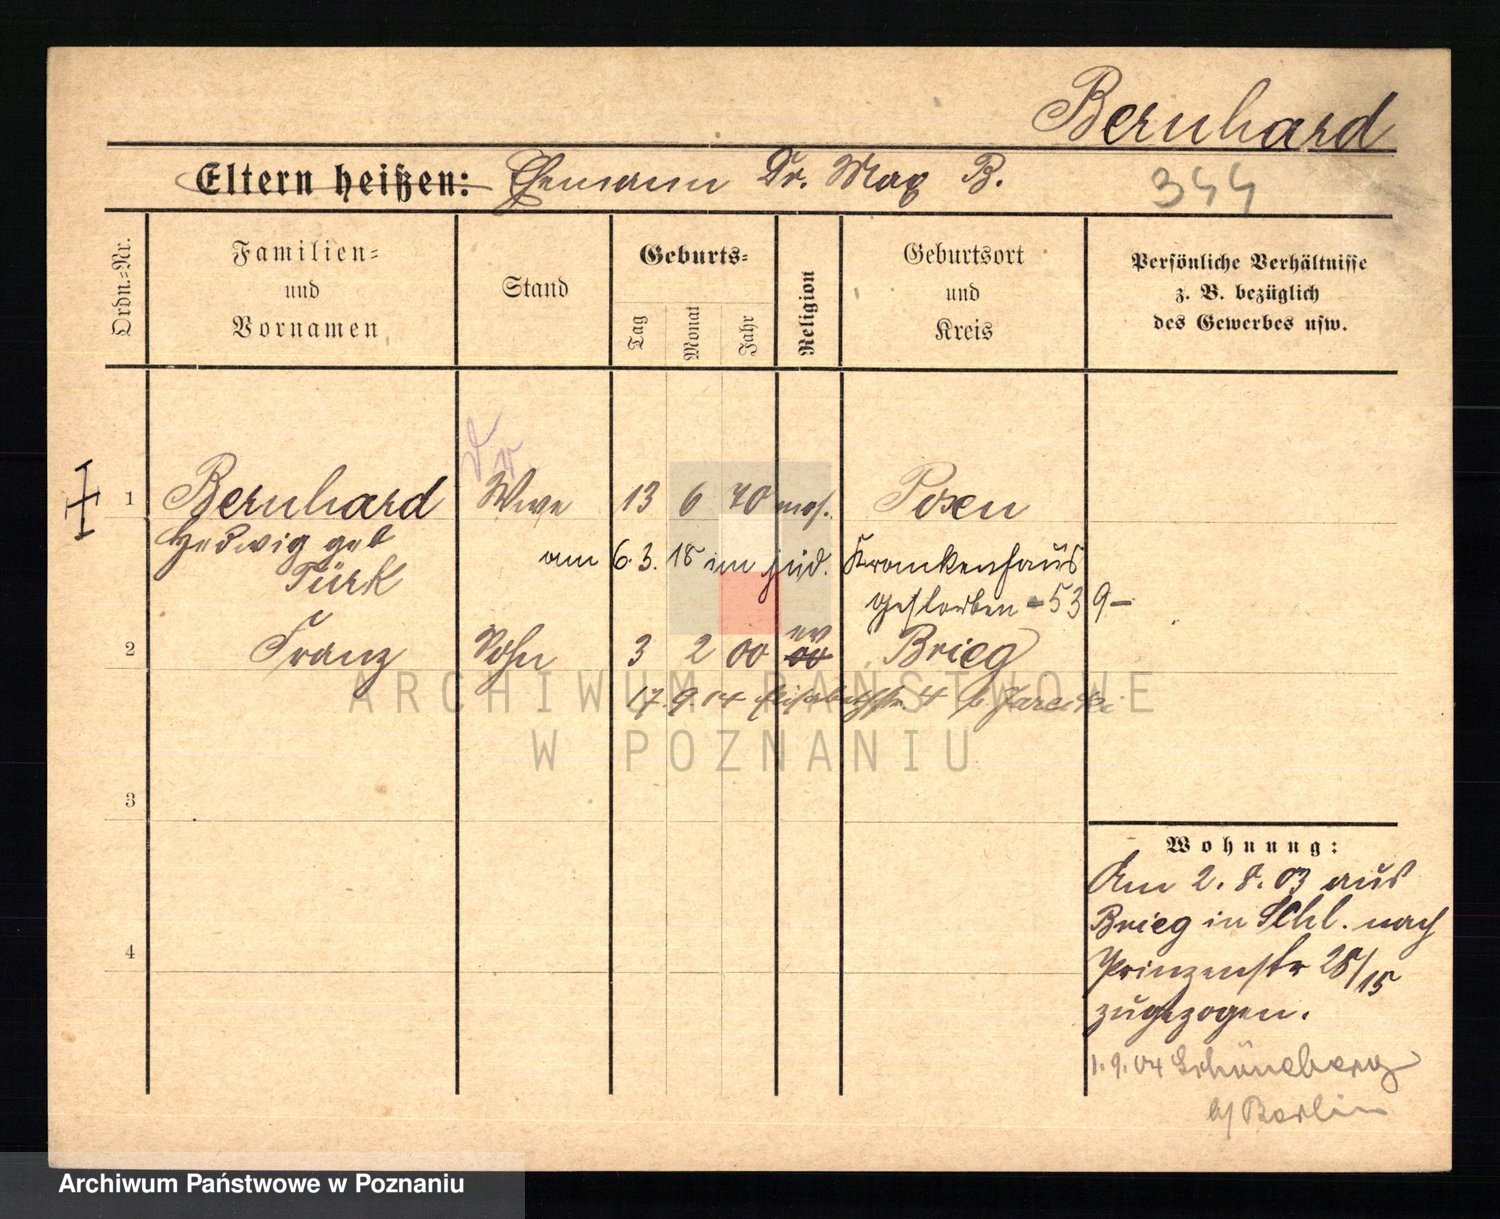 Bernhard
Eltern heißen: Ehemann Dr. Max B.
344
Ordn.-Nr.
Familien-
und
Vornamen
Stand
Geburts-
Tag
Monat
Jahr
Religion
Geburtsort
und
Kreis
Persönliche Verhältnisse
z. B. bezüglich
des Gewerbes usw.
1 Bernhard Wwe 13 6 40 mos. Posen
Hedwig geb
Türk
am 6.3.18 im jüd. Krankenhaus
gestorben - 539 -
ev
2 Franz Sohn 3 2 00 Brieg
17.9.04 Elisabethstr. 4 b. Jarecki
3
4
Wohnung:
Am 2.8.03 aus
Brieg in Schl. nach
Prinzenstr 28/15
zugezogen.
1.9.04 Schöneberg
b/ Berlin
ARCHIWUM PAŃSTWOWE
W POZNANIU
Archiwum Państwowe w Poznaniu